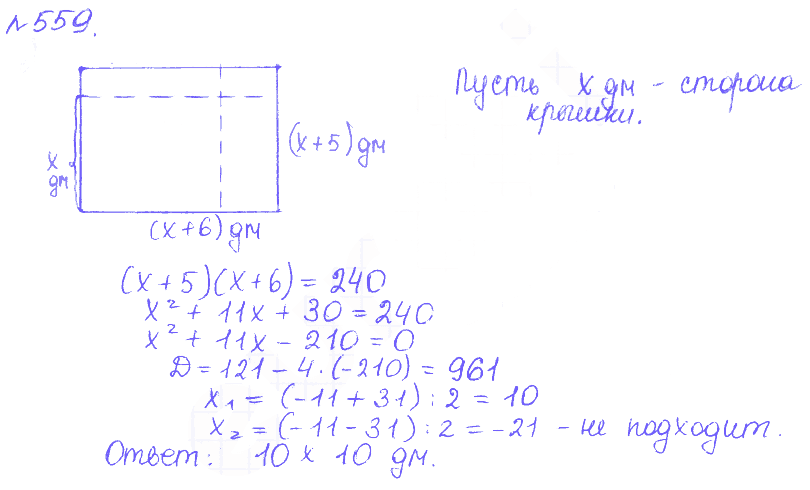 №559.
Пусть x дм - сторона
крышки.
(x+5) дм
x
дм
(x+6) дм
(x+5)(x+6) = 240
x² + 11x + 30 = 240
x² + 11x - 210 = 0
Д = 121 - 4·(-210) = 961
x₁ = (-11 + 31) : 2 = 10
x₂ = (-11 - 31) : 2 = -21 - не подходит.
Ответ: 10 x 10 дм.